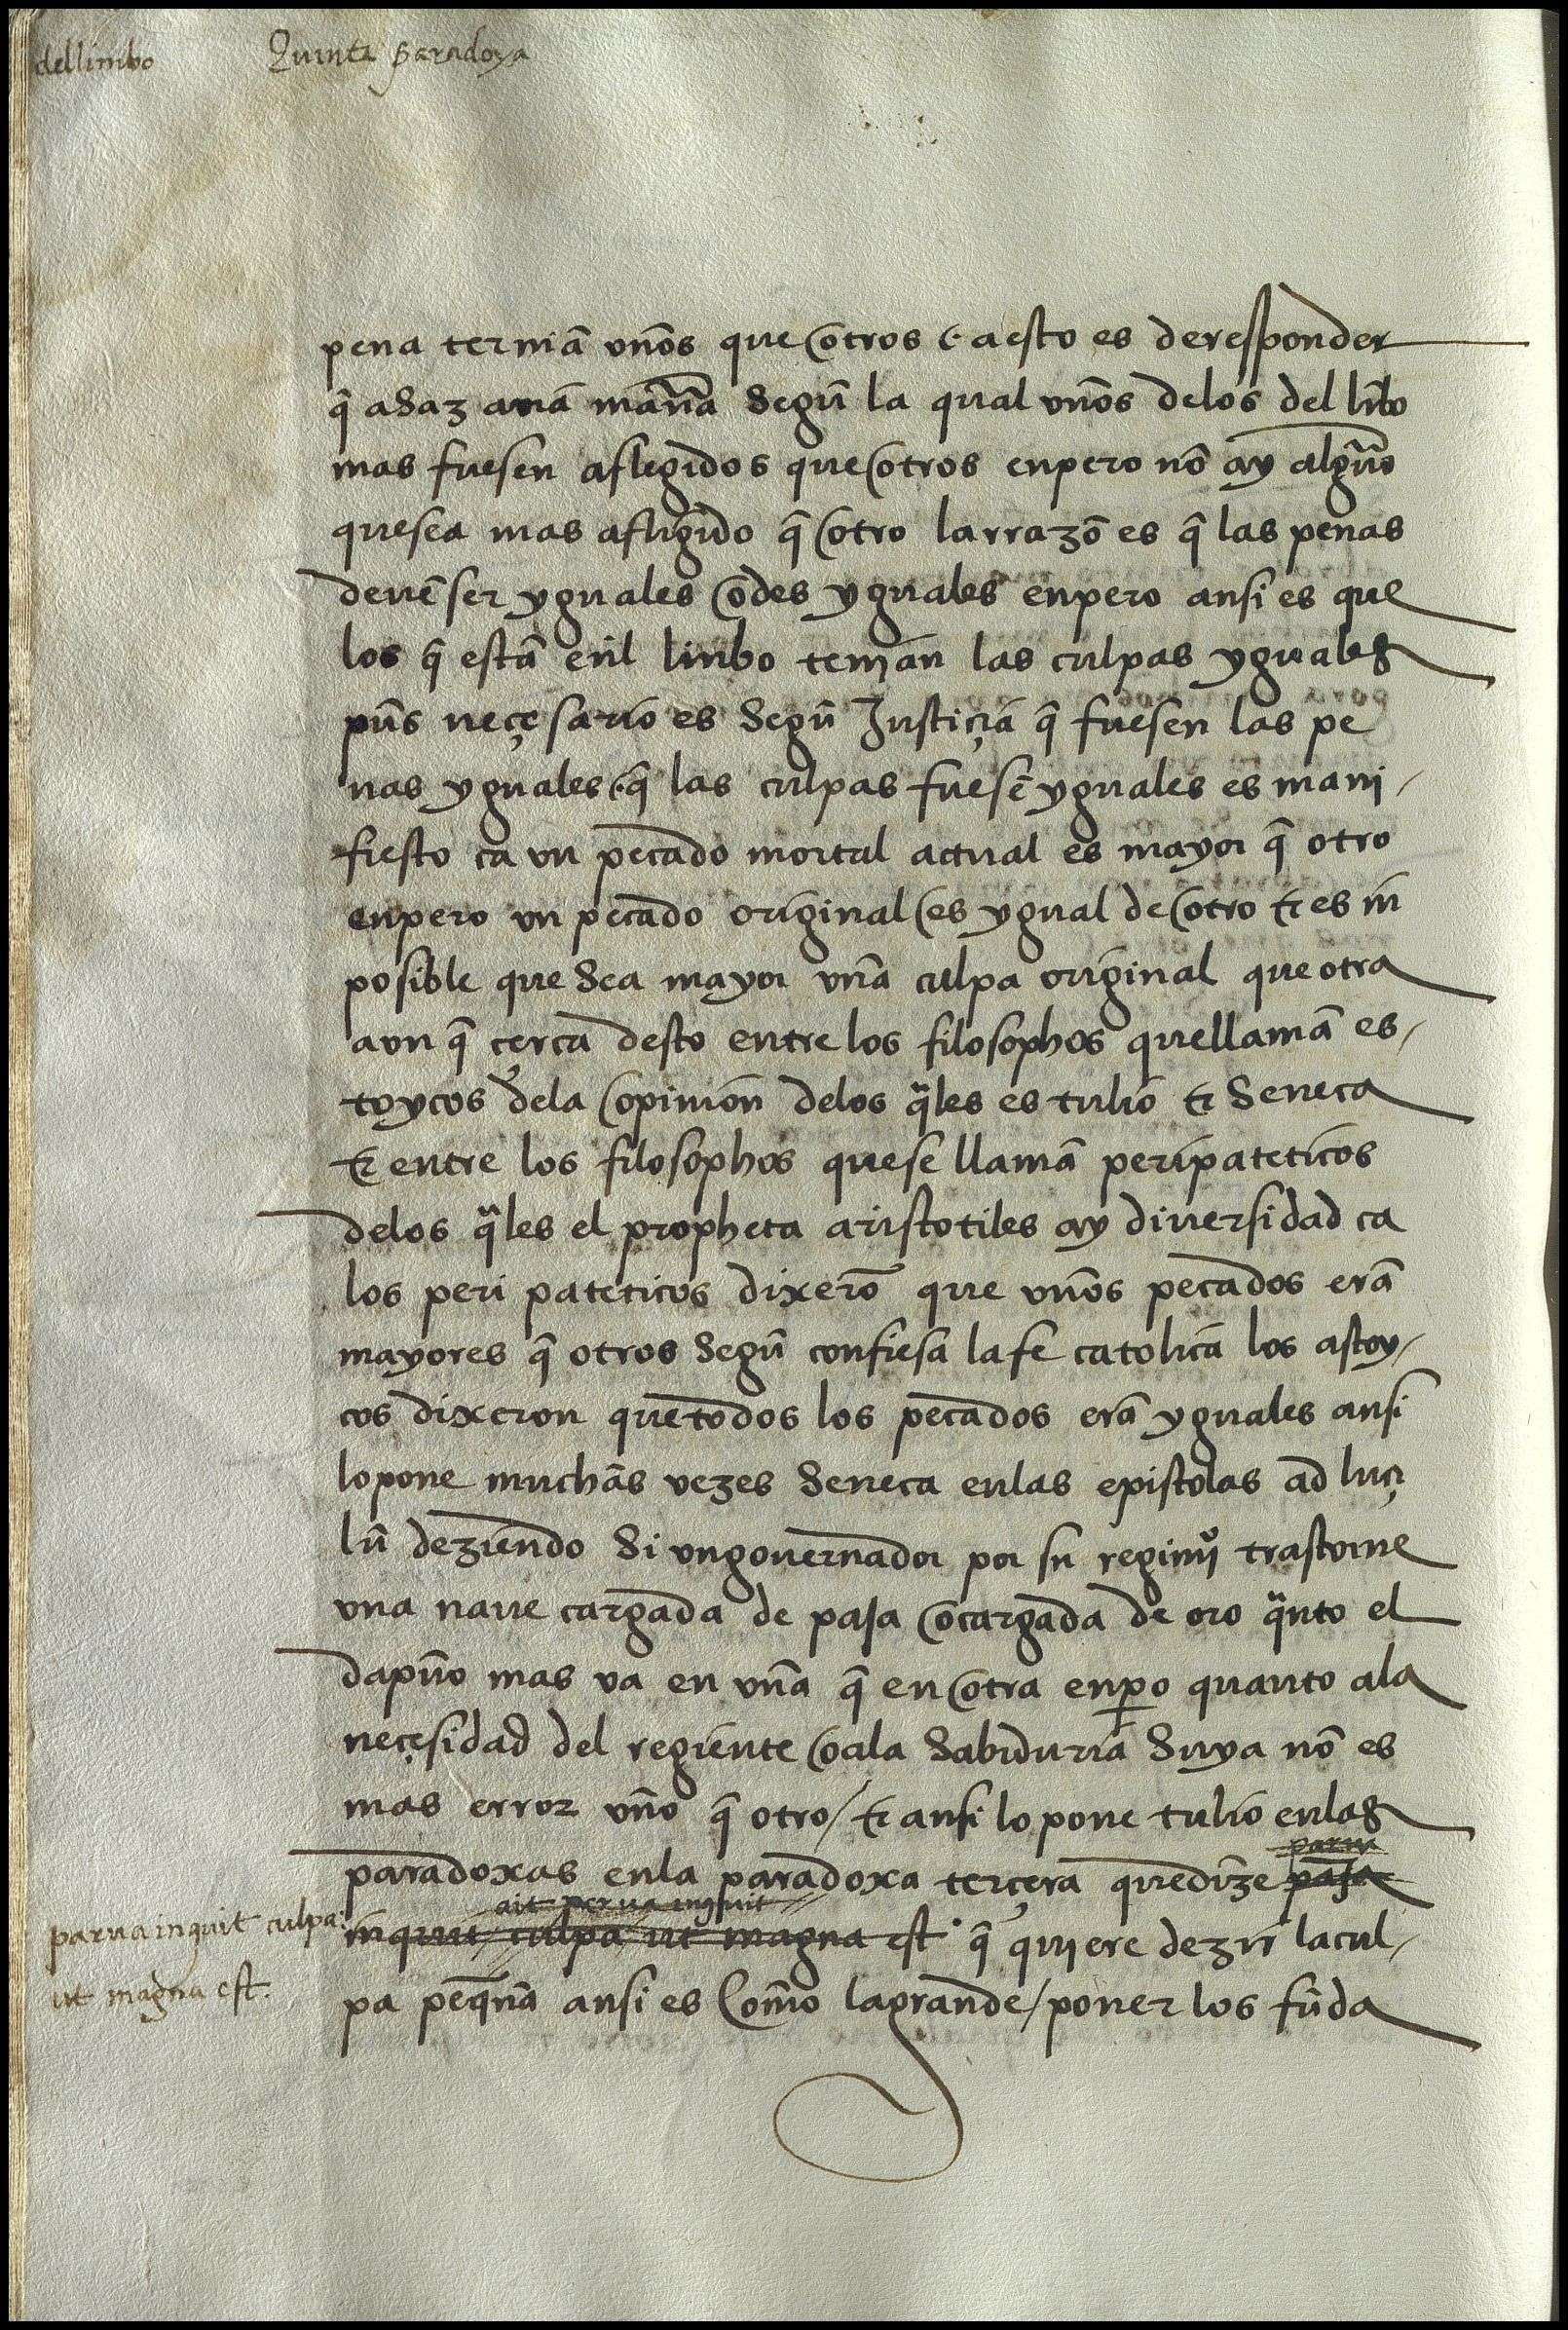 del limbo Quinta paradoxa
pena terniã vnõs que otros (. a esto es de responder
q̃ asaz auiã manr̃a Segũ la qual vnõs delos del lĩbo
mas fuesen aflegidos que otros enpero nõ ay algũo
quesea mas afligido q̃ otro la rrazõ es q̃ las penas
deuẽ ser yguales o des yguales enpero ansi es que
los q̃ estã enl̃ linbo tenian las culpas yguales
pũs neçesario es Segũ Justiçia q̃ fuesen las pe
nas yguales (. q̃ las culpas fuesẽ yguales es mani-
fiesto ca vn pecado mortal actual es mayor q̃ otro
enpero vn pecado original es ygual de otro & es in
posible que Sea mayor vña culpa original que otra
avn q̃ çerca desto entre los filosophos que llamã es-
toycos dela opinion delos q̃les es tulio & Seneca
& entre los filosophos quese llamã peripateticos
delos q̃les el propheta aristotiles ay diuersidad ca
los peri pateticos dixerõ que vnõs pecados erã
mayores q̃ otros Segũ confiesa la fe catolica los astoy-
cos dixeron que todos los pecados erã yguales ansi
lo pone muchãs vezes Seneca enlas epistolas ad luçi
lũ deziendo Si vn gouernador por su regimịº trastorne
vna naue cargada de paja o cargada de oro q̃nto el
dapño mas va en vña q̃ en otra enp̱o quanto ala
neçesidad del regiente o ala Sabiduria Suya nõ es
mas error vño q̃ otro / & ansi lo pone tulio enlas
parua
paradoxas enla paradoxa terçera que dize paja
ait parua inquit
parua inquit culpa: inquit culpa ut magna est. q̃ quiere dezir la cul-
ut magna est. pa peq̃ña ansi es Com̃o la grande / poner los fũda